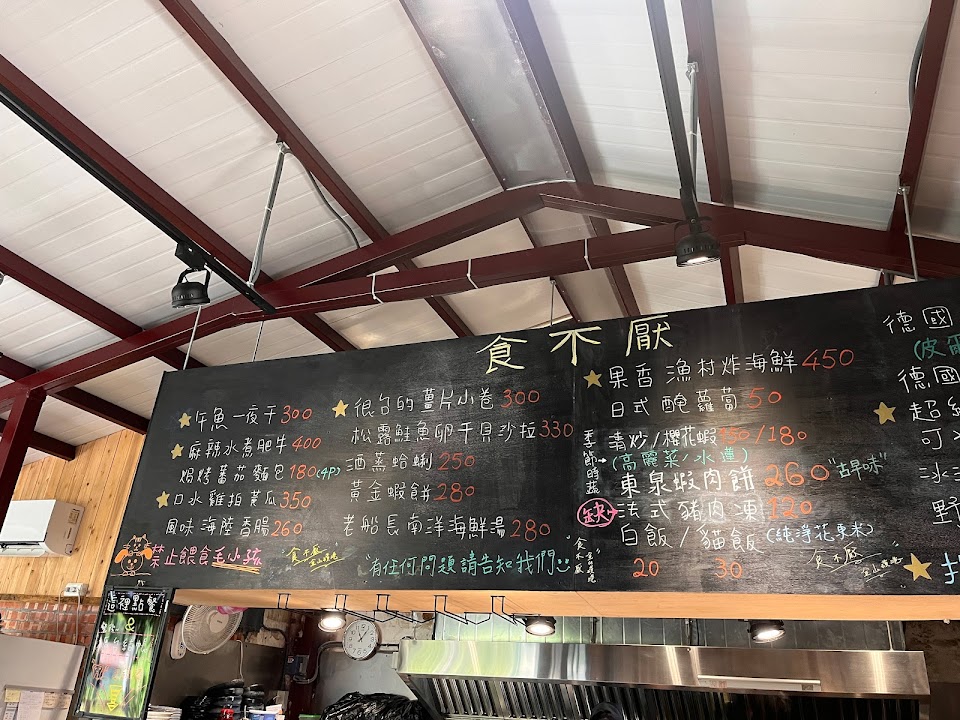 食不厭
午魚一夜干300
麻辣水煮肥牛400
焗烤蕃茄麵包180(4P)
口水雞拍黃瓜350
風味海陸香腸260
禁止餵食毛小孩
很台的薑片小卷300
松露鮭魚卵干貝沙拉330
酒蒸蛤蜊250
黃金蝦餅280
老船長南洋海鮮湯280
"食不厭
"有任何問題請告知我們
果香漁村炸海鮮450
日式醃蘿蔔50
季節時蔬
清炒/櫻花蝦150/180
(高麗菜/水蓮)
東泉蝦肉餅260"古早味"
缺
法式豬肉凍120
白飯/貓飯(純淨花東米)
20 30
"食不厭
食不厭
德國
德國
超
可
冰
野
這裡點餐
&